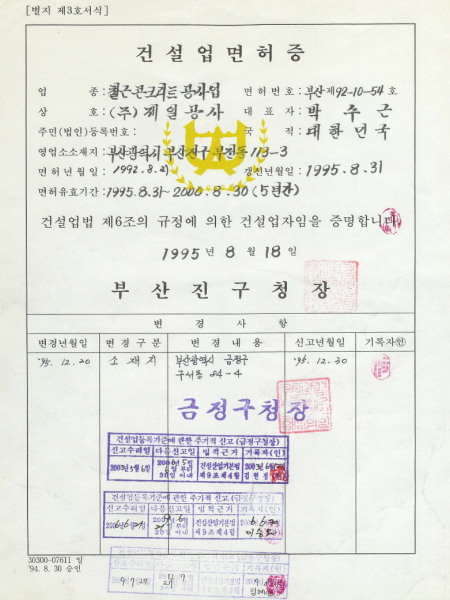 [별지 제3호서식]
건설업면허증
업 종: 철근콘크리트공사업 면허번호: 부산 제92-10-54호
상 호: (주)제일공사 대표자: 박수근
주민(법인)등록번호: 국 적: 대한민국
영업소소재지: 부산광역시 부산진구 부전동 113-3
면허년월일: 1992.8.31 갱신년월일: 1995.8.31
면허유효기간: 1995.8.31~2000.8.30 (5년간)
건설업법 제6조의 규정에 의한 건설업자임을 증명합니다.
1995 년 8 월 18 일
부산진구청장
변 경 사 항
변경년월일 변경구분 변경내용 신고년월일 기록자㊞
'95.12.20 소재지 부산광역시 금정구 '95.12.30
구서동 84-4
금정구청장
건설업등록기준에 관한 주기적 신고(금정구청장)
신고수리일 다음신고일 법적근거 기록자(인)
2003년5월6일 2006년5월 건설산업기본법
30일 이내 제9조제4항
건설업등록기준에 관한 주기적 신고(금정구청장)
신고수리일 다음신고일 법적근거 기록자(인)
건설산업기본법
30일 이내 제9조제4항
신고수리일 다음신고일 법적근거 기록자(인)
건설산업기본법
제9조제4항
30300-07611 일
'94. 8. 30 승인